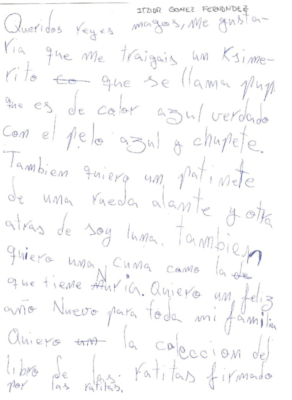 ITZIAR GOMEZ FERNANDEZ
Queridos reyes magos, me gusta-
ria que me traigais un Ksime-
rito que se llama pupi
que es de color azul verdado
con el pelo azul y chupete.
Tambien quiero un patinete
de una rueda alante y otra
atras de soy luna. Tambien
quiero una cuna como la
que tiene Nuria. Quiero un feliz
año Nuevo para toda mi familia
Quiero un la coleccion del
libro de las ratitas firmado
por las ratitas.